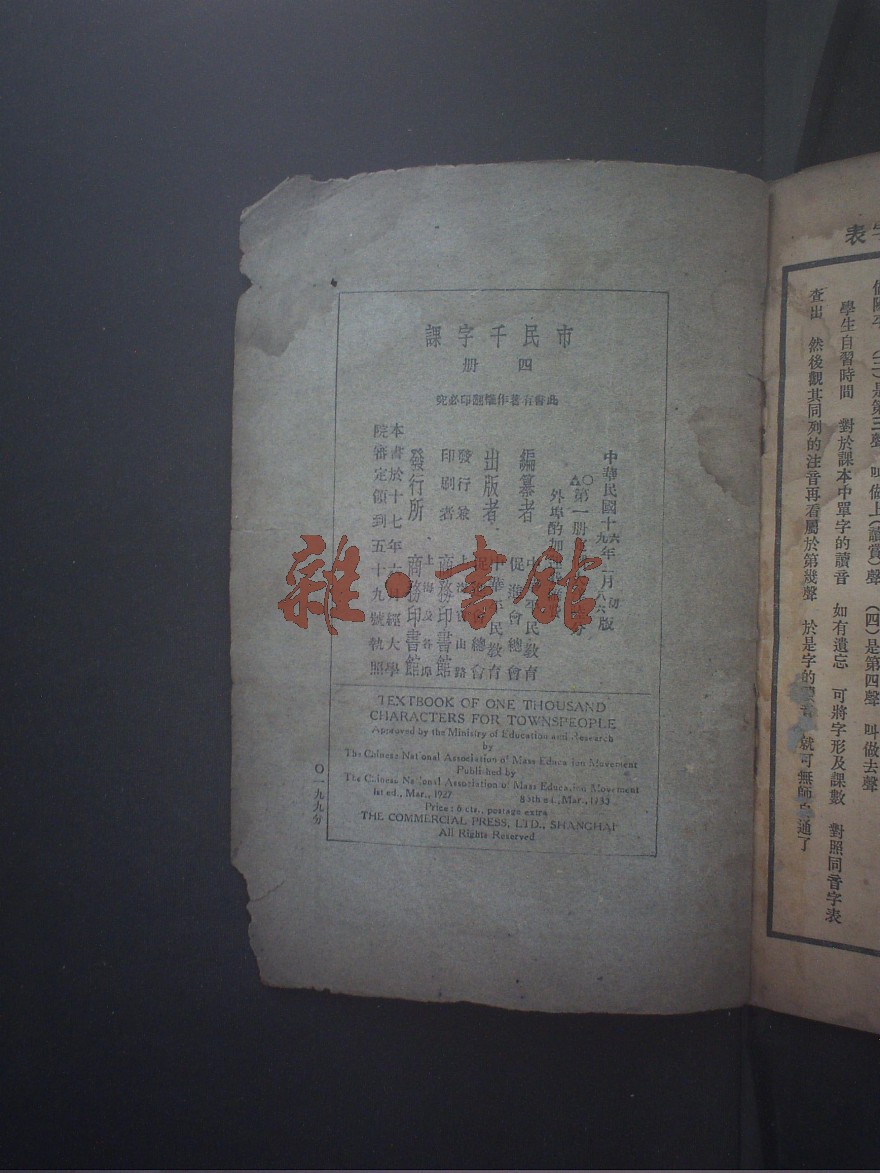 市民千字課
四冊
此書有著作權翻印必究
中華民國十六年三月初版
編纂者
出版者
發行兼
印刷者
上海寶山路
商務印書館
發行所
上海及各埠
商務印書館
本書於十七年
經大學
院審定領到五十九號執照
TEXTBOOK OF ONE THOUSAND
CHARACTERS FOR TOWNSPEOPLE
Approved by the Ministry of Education and Research
by
The Chinese National Association of Mass Education Movement
Published by
The Chinese National Association of Mass Education Movement
1st ed., Mar., 1927
Price: 6 cts., postage extra
THE COMMERCIAL PRESS, LTD., SHANGHAI
All Rights Reserved
〇一九九分
雜·書館
字表
學生自習時間 對於課本中單字的讀音 如有遺忘 可將字形及課數 對照同音字表
查出 然後觀其同列的注音再看屬於第幾聲 於是字的
就可無師自通了
(三)是第三聲 叫做上(讀賞)聲 (四)是第四聲 叫做去聲